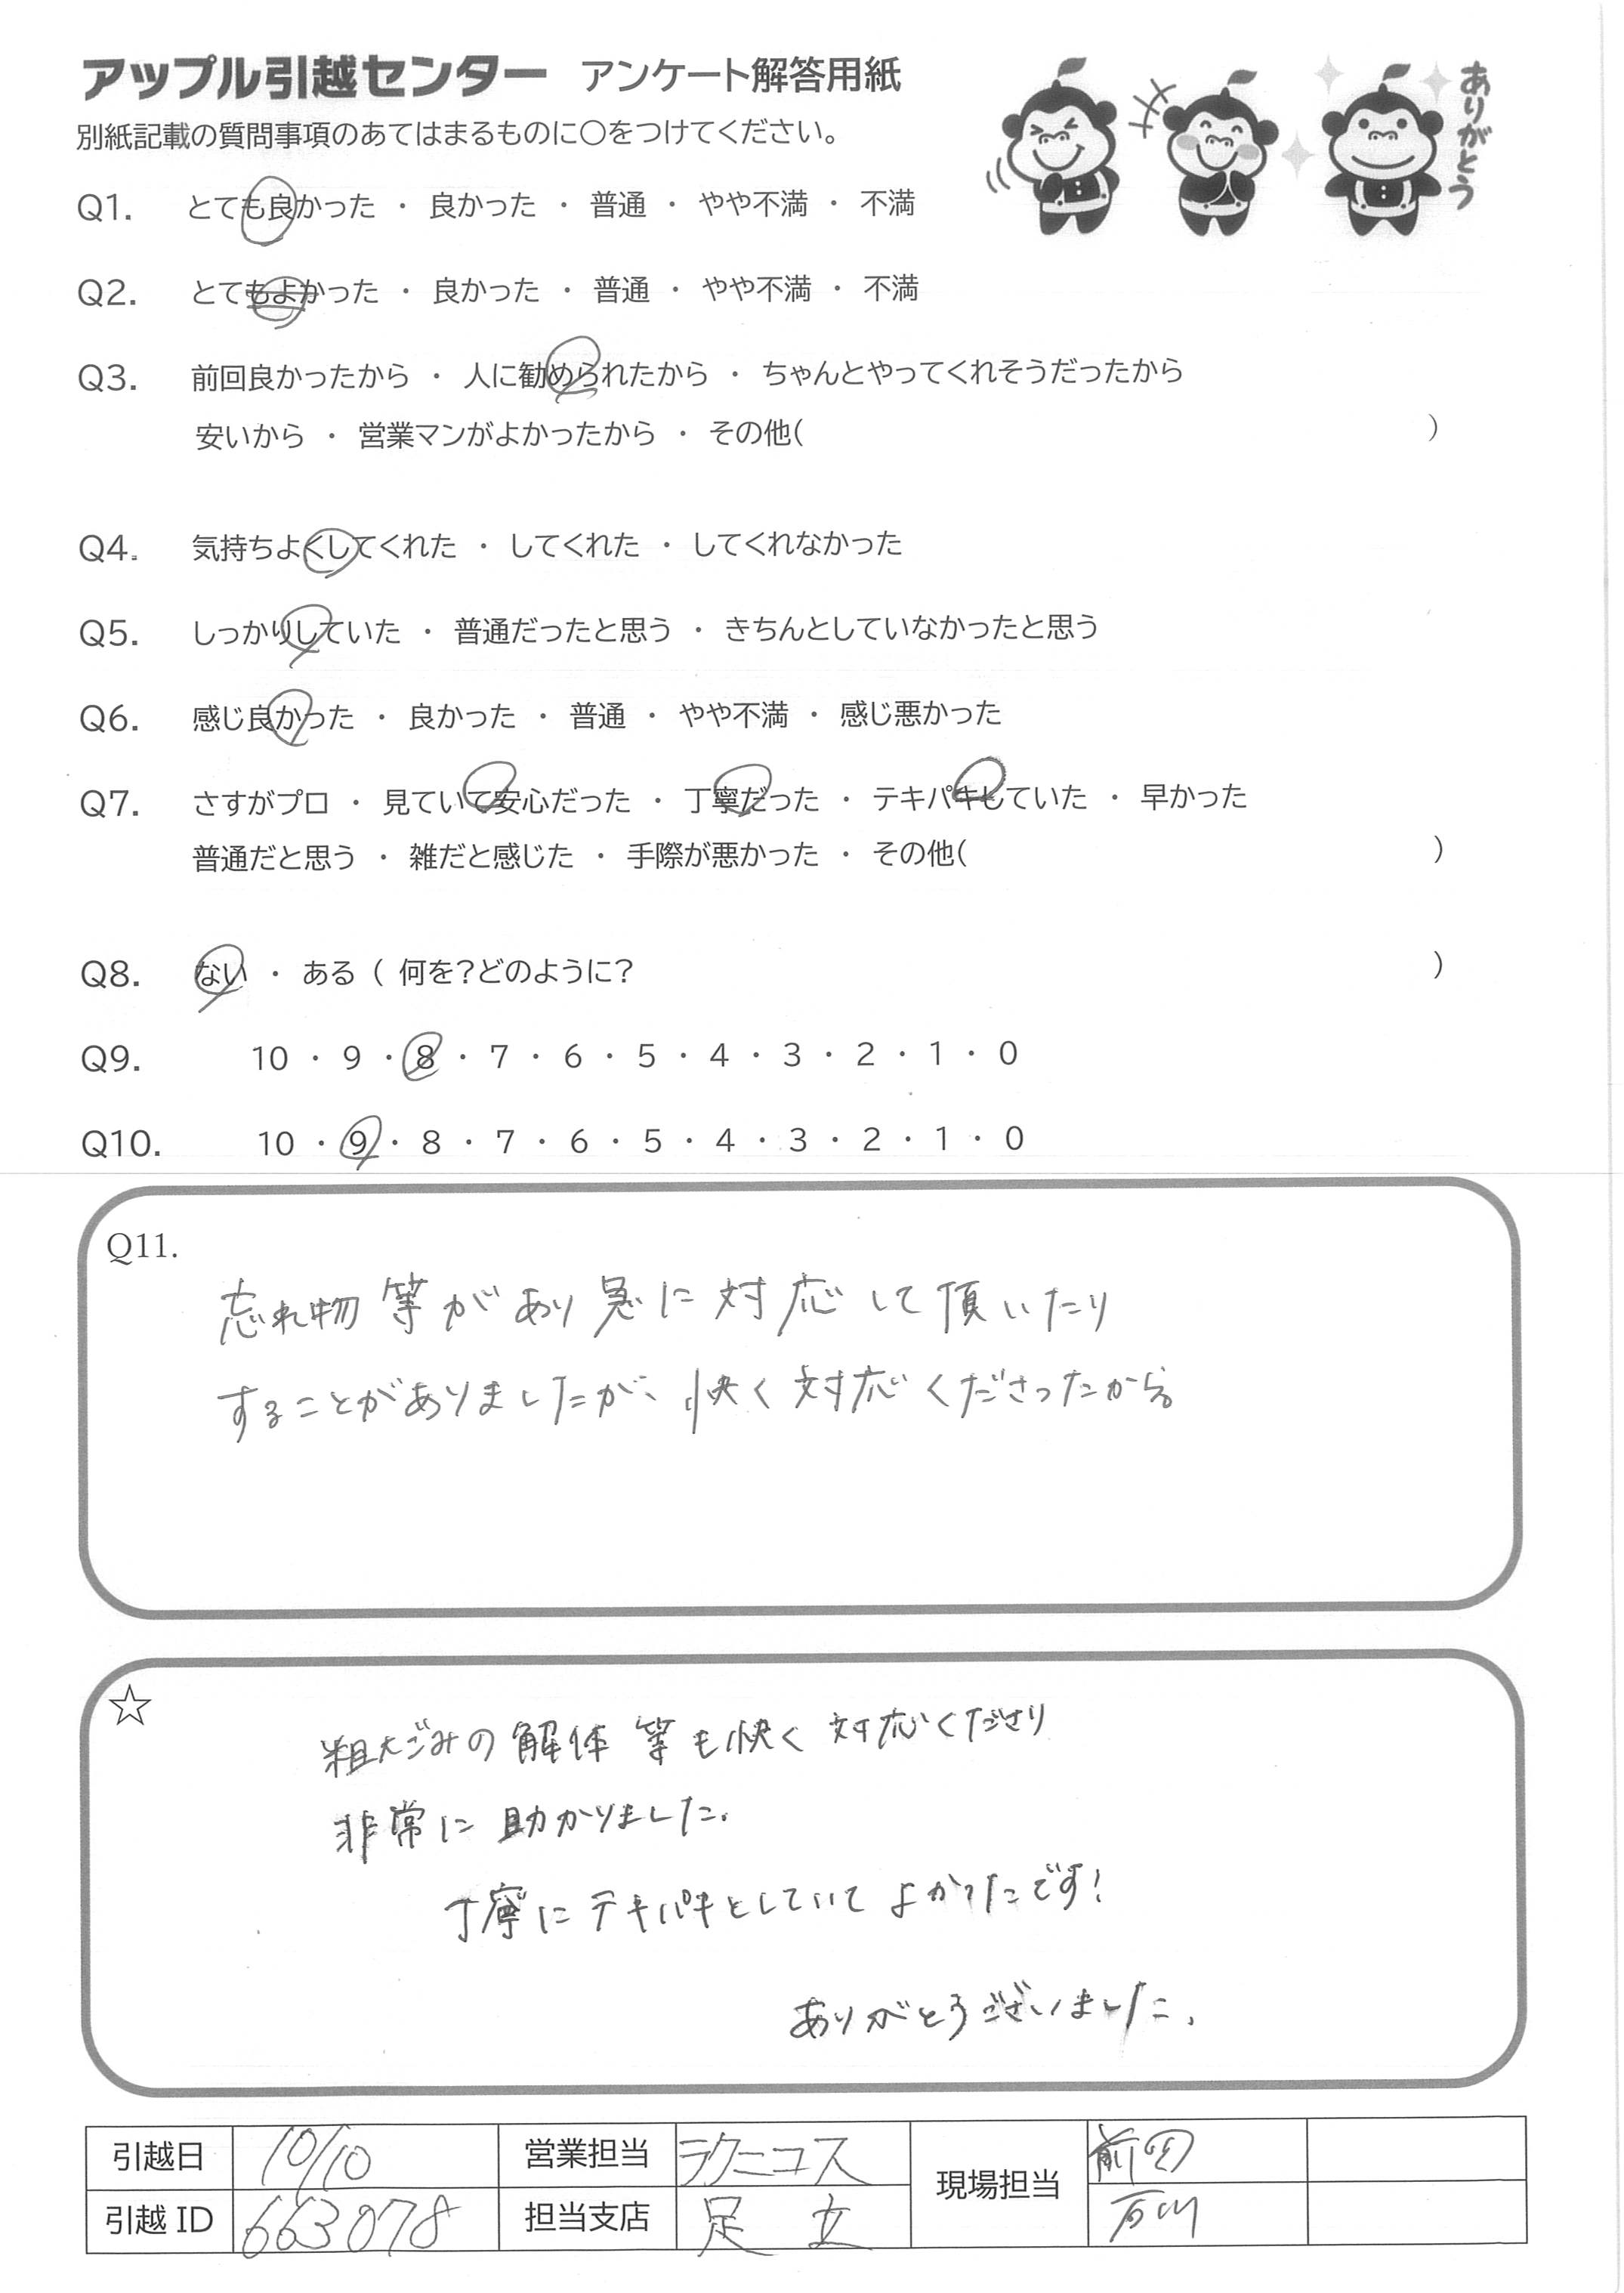 アップル引越センター アンケート解答用紙
別紙記載の質問事項のあてはまるものに○をつけてください。
ありがとう
Q1. とても良かった ・ 良かった ・ 普通 ・ やや不満 ・ 不満
Q2. とてもよかった ・ 良かった ・ 普通 ・ やや不満 ・ 不満
Q3. 前回良かったから ・ 人に勧められたから ・ ちゃんとやってくれそうだったから
安いから ・ 営業マンがよかったから ・ その他( )
Q4. 気持ちよくしてくれた ・ してくれた ・ してくれなかった
Q5. しっかりしていた ・ 普通だったと思う ・ きちんとしていなかったと思う
Q6. 感じ良かった ・ 良かった ・ 普通 ・ やや不満 ・ 感じ悪かった
Q7. さすがプロ ・ 見ていて安心だった ・ 丁寧だった ・ テキパキしていた ・ 早かった
普通だと思う ・ 雑だと感じた ・ 手際が悪かった ・ その他( )
Q8. ない ・ ある ( 何を?どのように? )
Q9. 10 ・ 9 ・ 8 ・ 7 ・ 6 ・ 5 ・ 4 ・ 3 ・ 2 ・ 1 ・ 0
Q10. 10 ・ 9 ・ 8 ・ 7 ・ 6 ・ 5 ・ 4 ・ 3 ・ 2 ・ 1 ・ 0
Q11.
忘れ物等があり急に対応して頂いたり
することがありましたが、快く対応くださったから
☆
粗大ごみの解体等も快く対応くださり
非常に助かりました。
丁寧にテキパキとしていてよかったです!
ありがとうございました。
引越日 10/10 営業担当 ラクニコス 現場担当 前田
引越 ID 663078 担当支店 足立